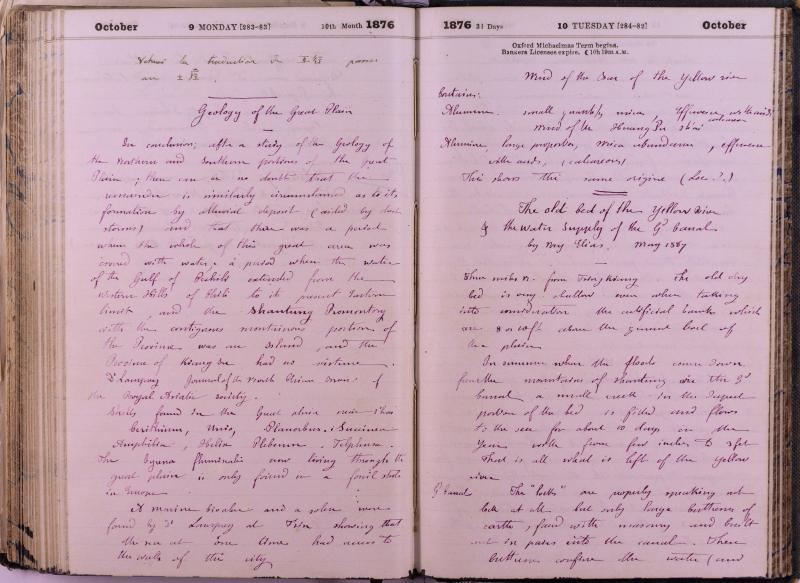 October 9 MONDAY [283-83] 10th Month 1876
Geology of the Great Plain
In conclusion, after a study of the Geology of
the Northern and Southern portions of the great
Plain; there can be no doubt that the
remainder is similarly circumstanced as to its
formation by Alluvial deposit (aided by dust
storms) and that there was a period
when the whole of this great area was
covered with water; a period when the water
of the Gulf of Pechili extended from the
Western Hills of Chili to its present Eastern
limit, and the Shantung Promontory
with the contiguous mountainous portion of
the Province was an Island, and the
Province of Kiang Su had no existence.
Dr Lamprey Journal of the North China Branch of
the Royal Asiatic Society.
Shells found in the Great plain near
Cerithium, Unio, Planorbis, Succinea
Amphibia, Helix
The now living through the
great plain is only found in a fossil state
in Europe
A marine bivalve and a solen were
found by Dr Lamprey at showing that
the sea at one time had access to
the walls of this city
1876 31 Days 10 TUESDAY [284-82] October
Oxford Michaelmas Term begins.
Bankers Licenses expire. ☾ 10h 19m A.M.
Mud of the of the Yellow river
Contains:
Alumine small quantity mica, effervesce with acids,
Mud of the Huang Pu calcareous
Alumine, large proportion, mica abundance, effervesce
with acids, (calcareous)
This shows the same origine (Loc.?.)
The old bed of the Yellow River
& the water supply of the Gd Canal
by Ney Elias. May 1867
Three miles N. from The old dry
bed is very shallow even when taking
into consideration the artificial banks which
are 8 or 10ft above the general level of
the plain
In summer when the floods come down
from the mountains of Shantung via the Gd
Canal a small creek in the deepest
portion of the bed is filled and flows
to the sea for about 10 days in the
year with from few inches to 3 feet
That is all what is left of the Yellow
river
Gd Canal The "locks" are properly speaking not
lock at all but only large buttresses of
earth, faced with masonry and built
out in pairs into the canal. These
buttresses confine the water (and